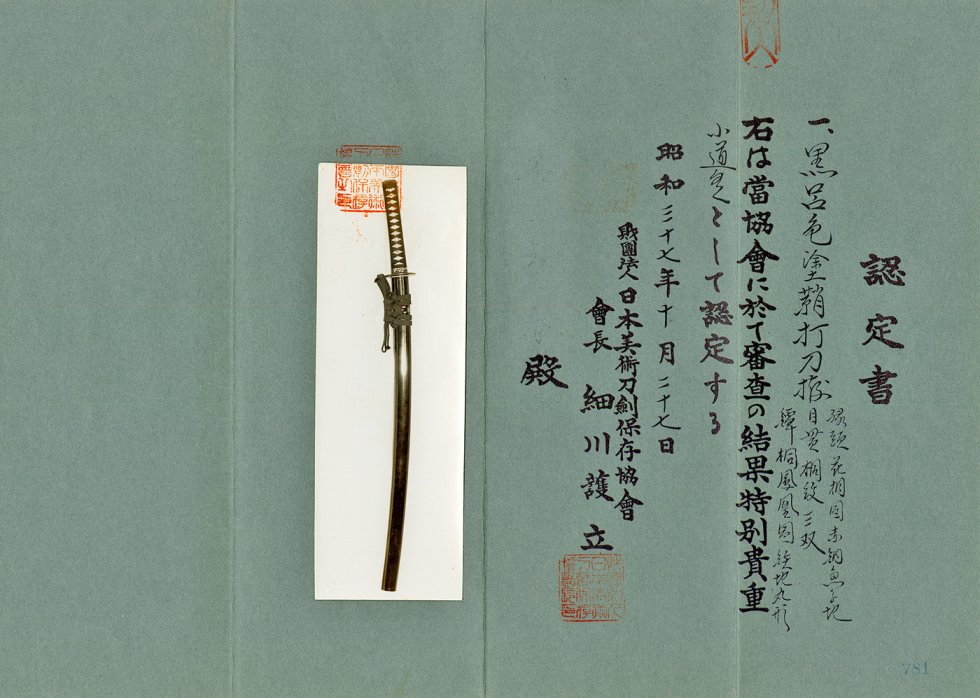 認定書
一、黒呂色塗鞘打刀拵
縁頭花桐図赤銅魚子地
目貫桐紋三双
鐔桐鳳凰図鉄地丸形
右は當協會に於て審査の結果特別貴重
小道具として認定する
昭和三十七年十月二十七日
財團法人日本美術刀劍保存協會
會長 細川護立
殿
781